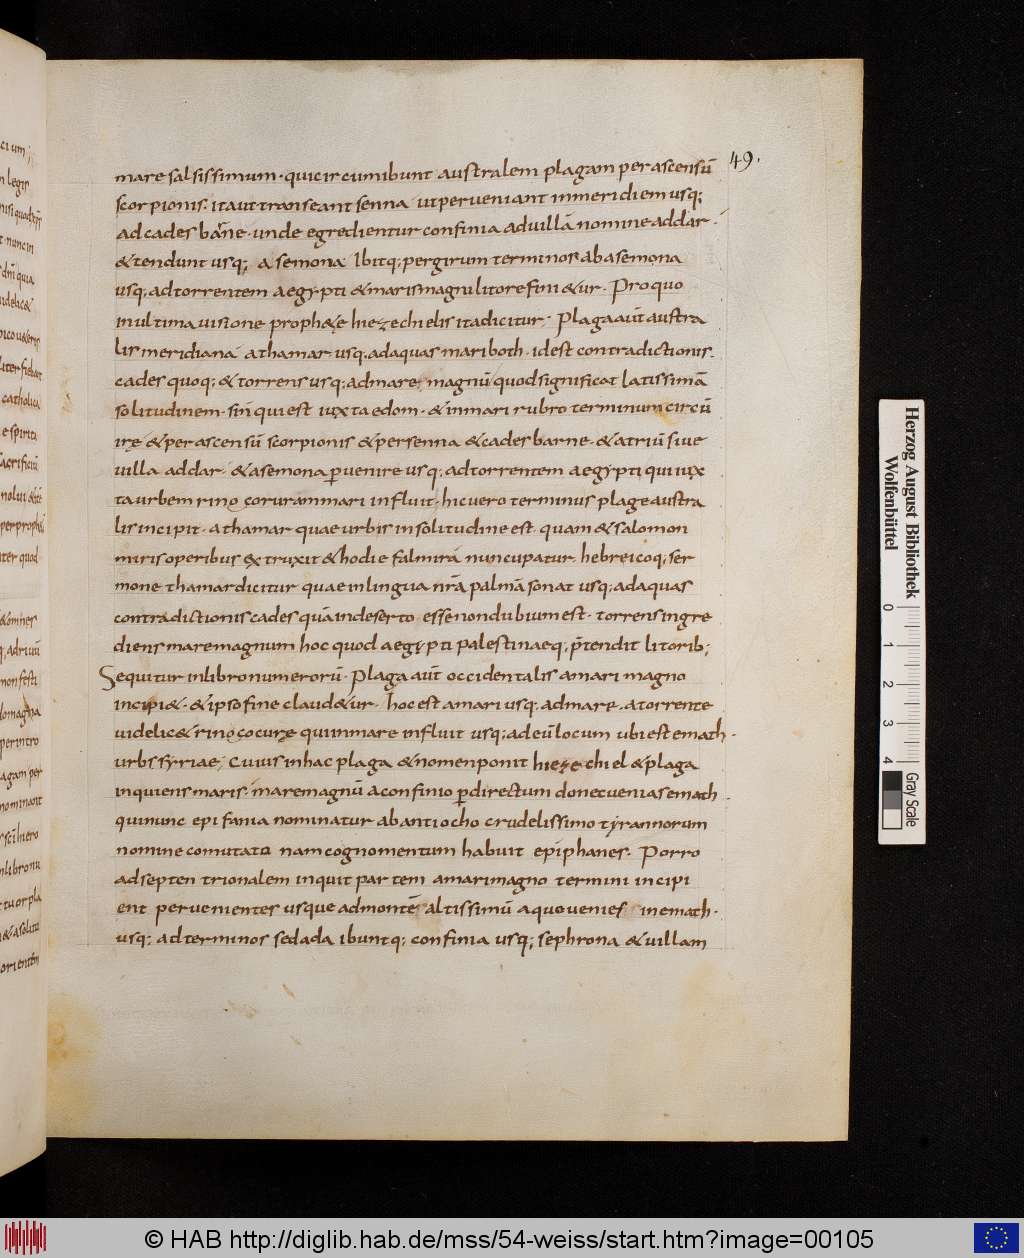 49.
mare salsissimum · qui circumibunt australem plagam per ascensū
scorpionis. ita ut transeant senna · ut perveniant inmeridiem usq;
ad cades barne · unde egredientur confinia ad villā nomine addar ·
& tendunt usq; asemona Ibitq; per girum terminos ab asemona
usq; ad torrentem aegypti & maris magni litore fini&ur · Pro quo
in ultima visione proph&e hiezechielis ita dicitur; Plaga aūt austra
lis meridiana athamar usq; ad aquas mariboth · id est contradictionis.
cades quoq; & torrens usq; ad mare magnū quod significat latissimā
solitudinem · sin qui est iuxta edom · & in mari rubro terminum circū
ire & per ascensū scorpionis & per senna & cades barne · & atriū sive
villa addar · & asemona pvenire usq; ad torrentem aegypti qui iux
ta urbem rinoçoruram mari influit · hic vero terminus plage austra
lis incipit · athamar quae urbis in solitudine est · quam & salomon
miris operibus extruxit & hodie falmira nuncupatur · hebreicoq; ser
mone thamar dicitur quae in lingua nrā palmā sonat usq; ad aquas
contradictionis cades quā in deserto esse non dubium est · torrens ingre
diens mare magnum hoc quod aegypti palestinaeq; ptendit litorib;
Sequitur in libro numerorū · Plaga aūt occidentalis amari magno
incipi& · & ipso fine claud&ur · hoc est amari usq; ad mare · atorrente
videlic& rinoçocure qui in mare influit usq; ad eū locum ubi est emath ·
urbs syriae; Cuius in hac plaga & nomen ponit hiezechiel & plaga
inquiens maris · mare magnū aconfinio pdirectum donec venias emath
qui nunc epifania nominatur ab antiocho crudelissimo tyrannorum
nomine comutato nam cognomentum habuit epiphanes · Porro
ad septentrionalem inquit partem amari magno termini incipi
ent pervenientes usque ad montē altissimū aquo venies in emath ·
usq; ad terminos sedada ibuntq; confinia usq; sephrona & villam
Herzog August Bibliothek
Wolfenbüttel
0 1 2 3 4
Gray Scale
© HAB http://diglib.hab.de/mss/54-weiss/start.htm?image=00105